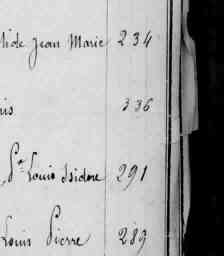 hide Jean Marie 234
is 336
, Pre Louis Isidore 291
Louis Pierre 289